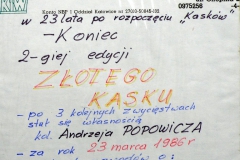 Konto NBP I Oddział Katowice nr 27010-5084B-132
0975256
w 23 lata po rozpoczęciu "Kasków"
- Koniec
2-giej edycji
ZŁOTEGO
KASKU
- po 3 kolejnych zwycięstwach
stał się własnością
kol. Andrzeja POPOWICZA
- za rok 23 marca 1986 r